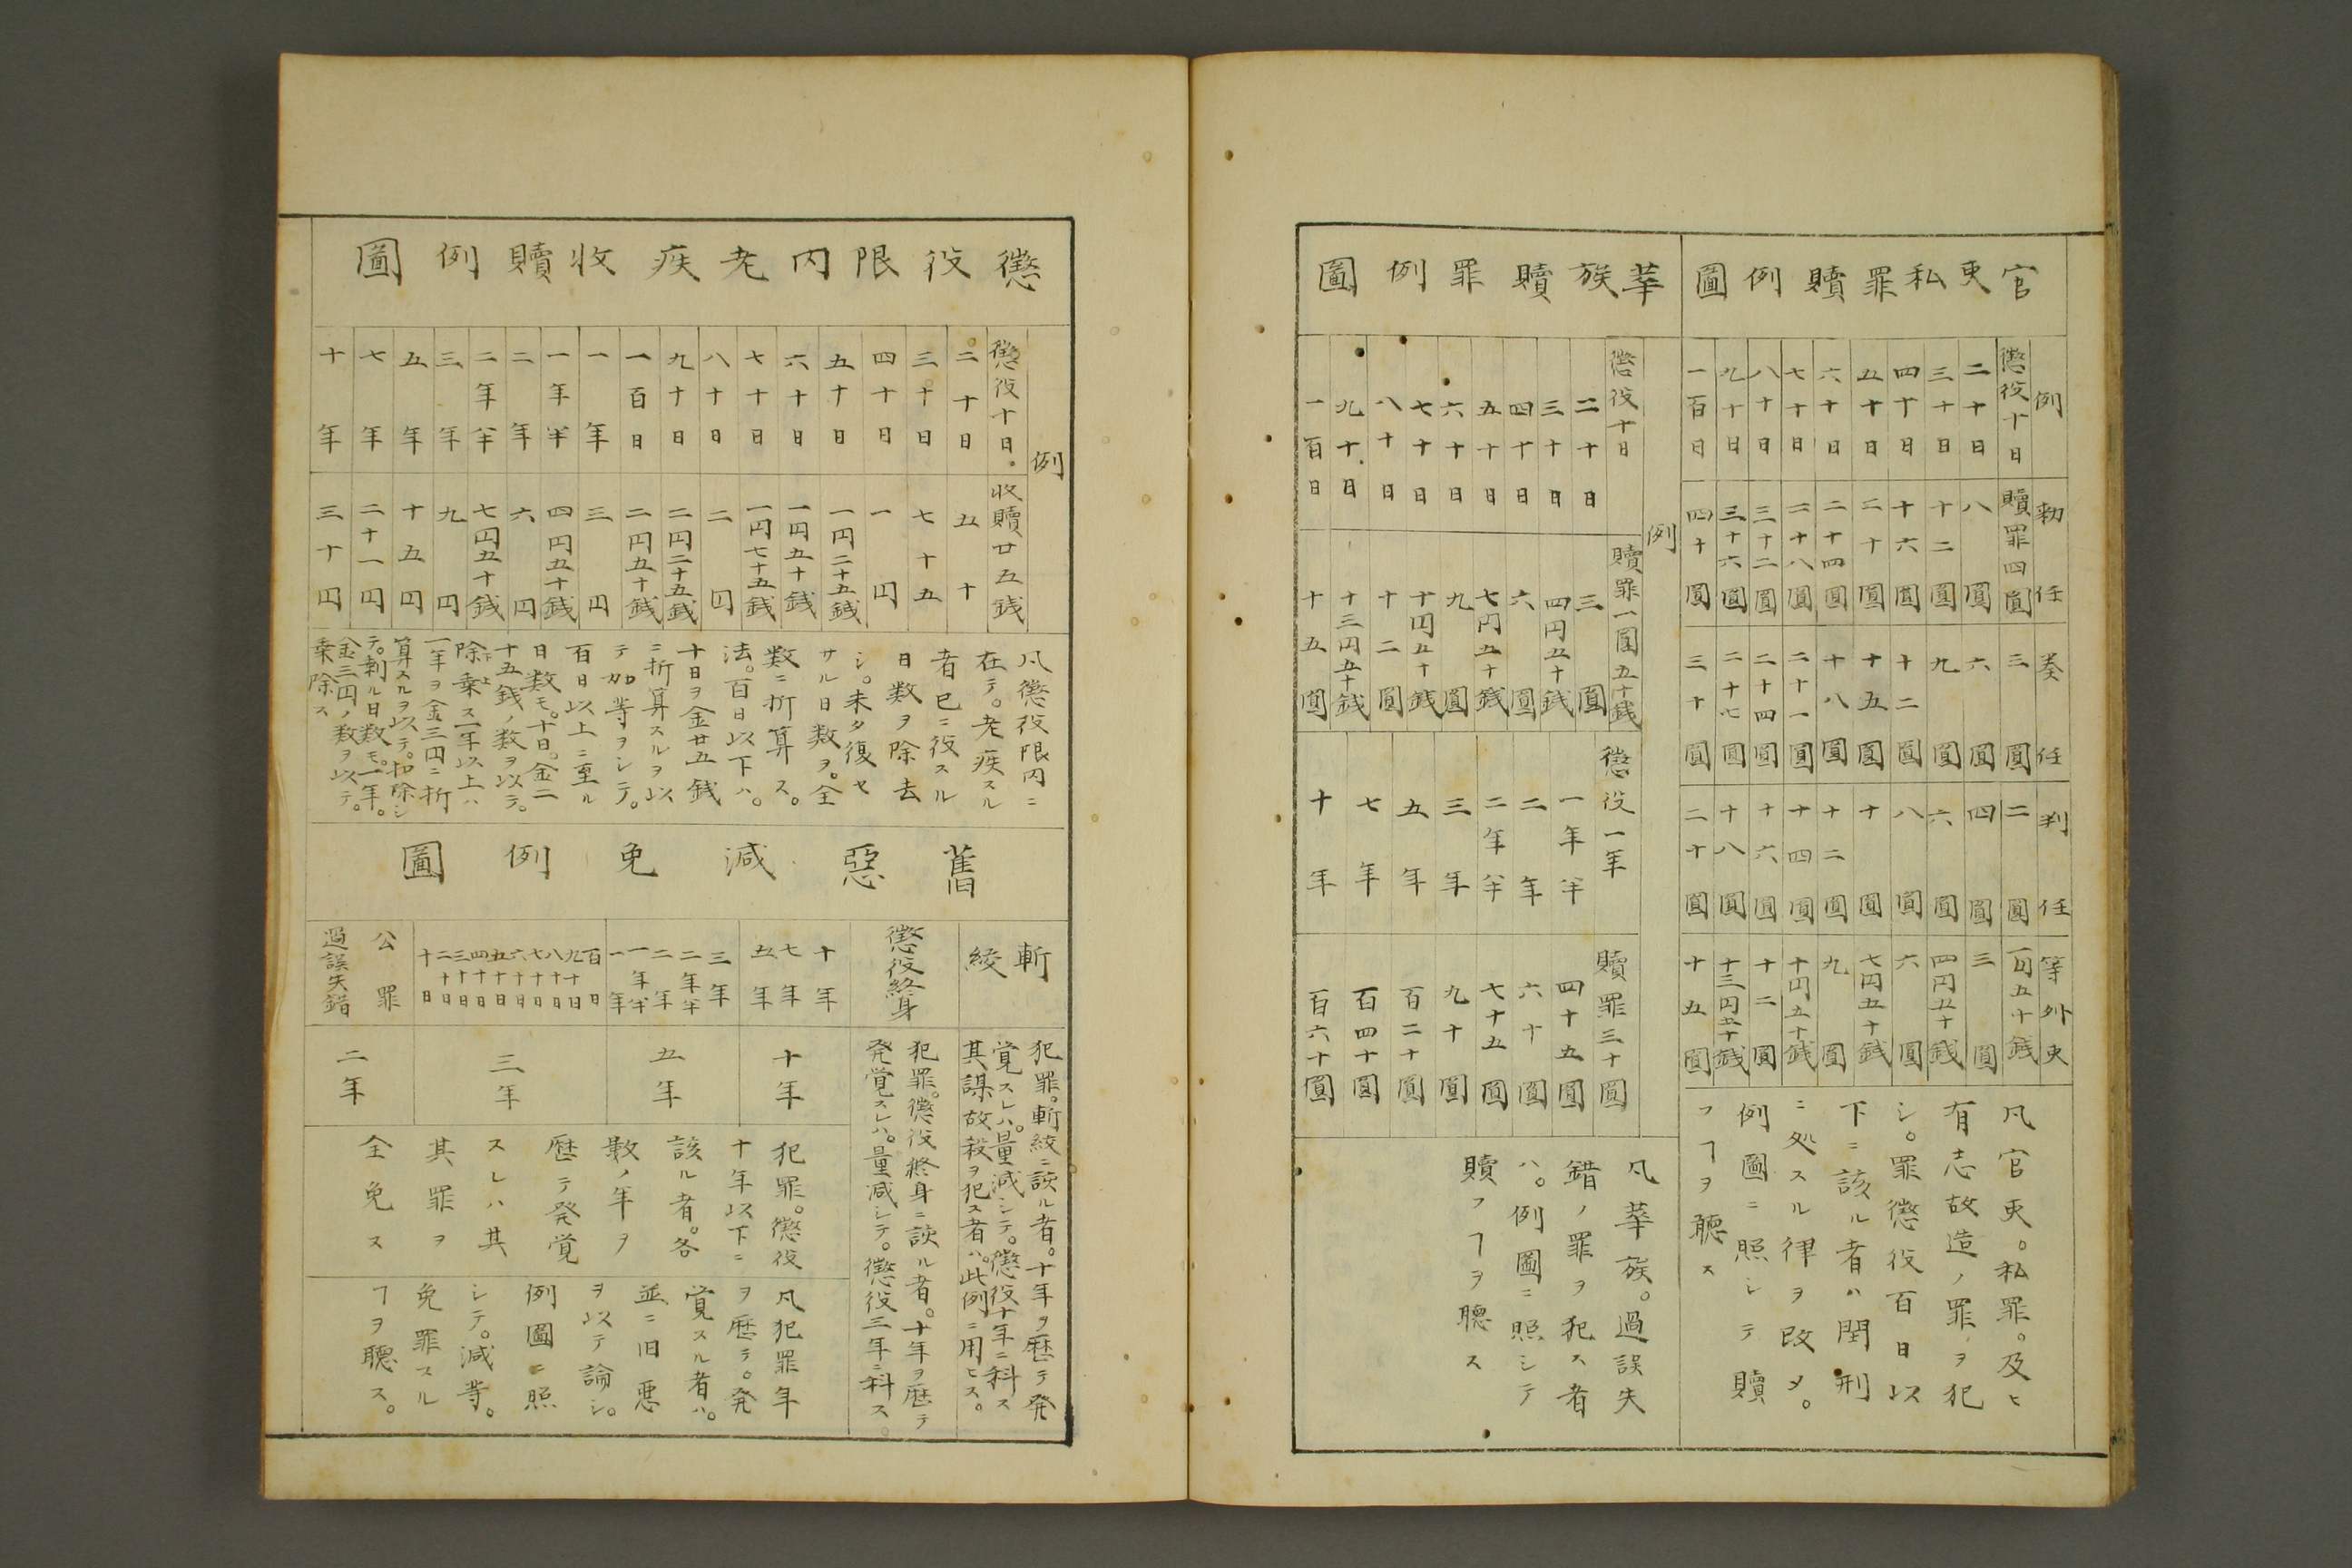 官吏私罪贖例圖
例
勅任
奏任
判任
等外吏
懲役十日 贖罪四圓 三圓 二圓 一円五十銭
二十日 八圓 六圓 四圓 三圓
三十日 十二圓 九圓 六圓 四円五十銭
四十日 十六圓 十二圓 八圓 六圓
五十日 二十圓 十五圓 十圓 七円五十銭
六十日 二十四圓 十八圓 十二圓 九圓
七十日 二十八圓 二十一圓 十四圓 十円五十銭
八十日 三十二圓 二十四圓 十六圓 十二圓
九十日 三十六圓 二十七圓 十八圓 十三円五十銭
一百日 四十圓 三十圓 二十圓 十五圓
凡官吏。私罪。及ヒ
有志故造ノ罪ヲ犯
シ。罪懲役百日以
下ニ該ル者ハ閏刑
ニ処スル律ヲ改メ。
例圖ニ照シテ贖
フヿヲ聴ス
華族贖罪例圖
例
懲役十日 贖罪一圓五十銭
二十日 三圓
三十日 四円五十銭
四十日 六圓
五十日 七円五十銭
六十日 九圓
七十日 十円五十銭
八十日 十二圓
九十日 十三円五十銭
一百日 十五圓
懲役一年 贖罪三十圓
一年半 四十五圓
二年 六十圓
二年半 七十五圓
三年 九十圓
五年 百二十圓
七年 百四十圓
十年 百六十圓
凡華族。過誤失
錯ノ罪ヲ犯ス者
ハ。例圖ニ照シテ
贖フヿヲ聴ス
懲役限内老疾收贖例圖
例
懲役十日。 收贖廿五銭
二十日 五十
三十日 七十五
四十日 一円
五十日 一円二十五銭
六十日 一円五十銭
七十日 一円七十五銭
八十日 二円
九十日 二円二十五銭
一百日 二円五十銭
一年 三円
一年半 四円五十銭
二年 六円
二年半 七円五十銭
三年 九円
五年 十五円
七年 二十一円
十年 三十円
凡懲役限内ニ
在テ。老疾スル
者已ニ役スル
日数ヲ除去
シ。未タ復セ
サル日数ヲ。全
数ニ折算ス。
法。百日以下ハ。
十日ヲ金廿五銭
ニ折算スルヲ以
テ加等ヲシテ。
百日以上ニ重ル
日数モ。十日。金二
十五銭ノ数ヲ以テ。
除乗ス一年以上ハ
一年ヲ金三円ニ折
算スルヲ以テ。扣除シ
テ。剰ル日数モ。一年。
金三円ノ数ヲ以テ。
乗除ス
舊惡減免例圖
斬
絞
犯罪。斬絞ニ該ル者。十年ヲ歴テ発
覚スレハ。量減シテ。懲役十年ニ科ス
其謀故殺ヲ犯ス者ハ。此例ニ用ヒス。
懲役終身
犯罪。懲役終身ニ該ル者。十年ヲ歴テ
発覚スレハ。量減シテ。懲役三年ニ科ス。
十年
七年
五年
十年
三年
二年半
二年
一年半
一年
五年
百日
九十日
八十日
七十日
六十日
五十日
四十日
三十日
二十日
十日
三年
公罪
過誤失錯
二年
犯罪。懲役
十年以下ニ
該ル者。各
数ノ年ヲ
歴テ発覚
スレハ其
其罪ヲ
全免ス
凡犯罪年
ヲ歴テ。発
覚スル者ハ。
並ニ旧悪
ヲ以テ論シ。
例圖ニ照
シテ。減等。
免罪スル
ヿヲ聴ス。